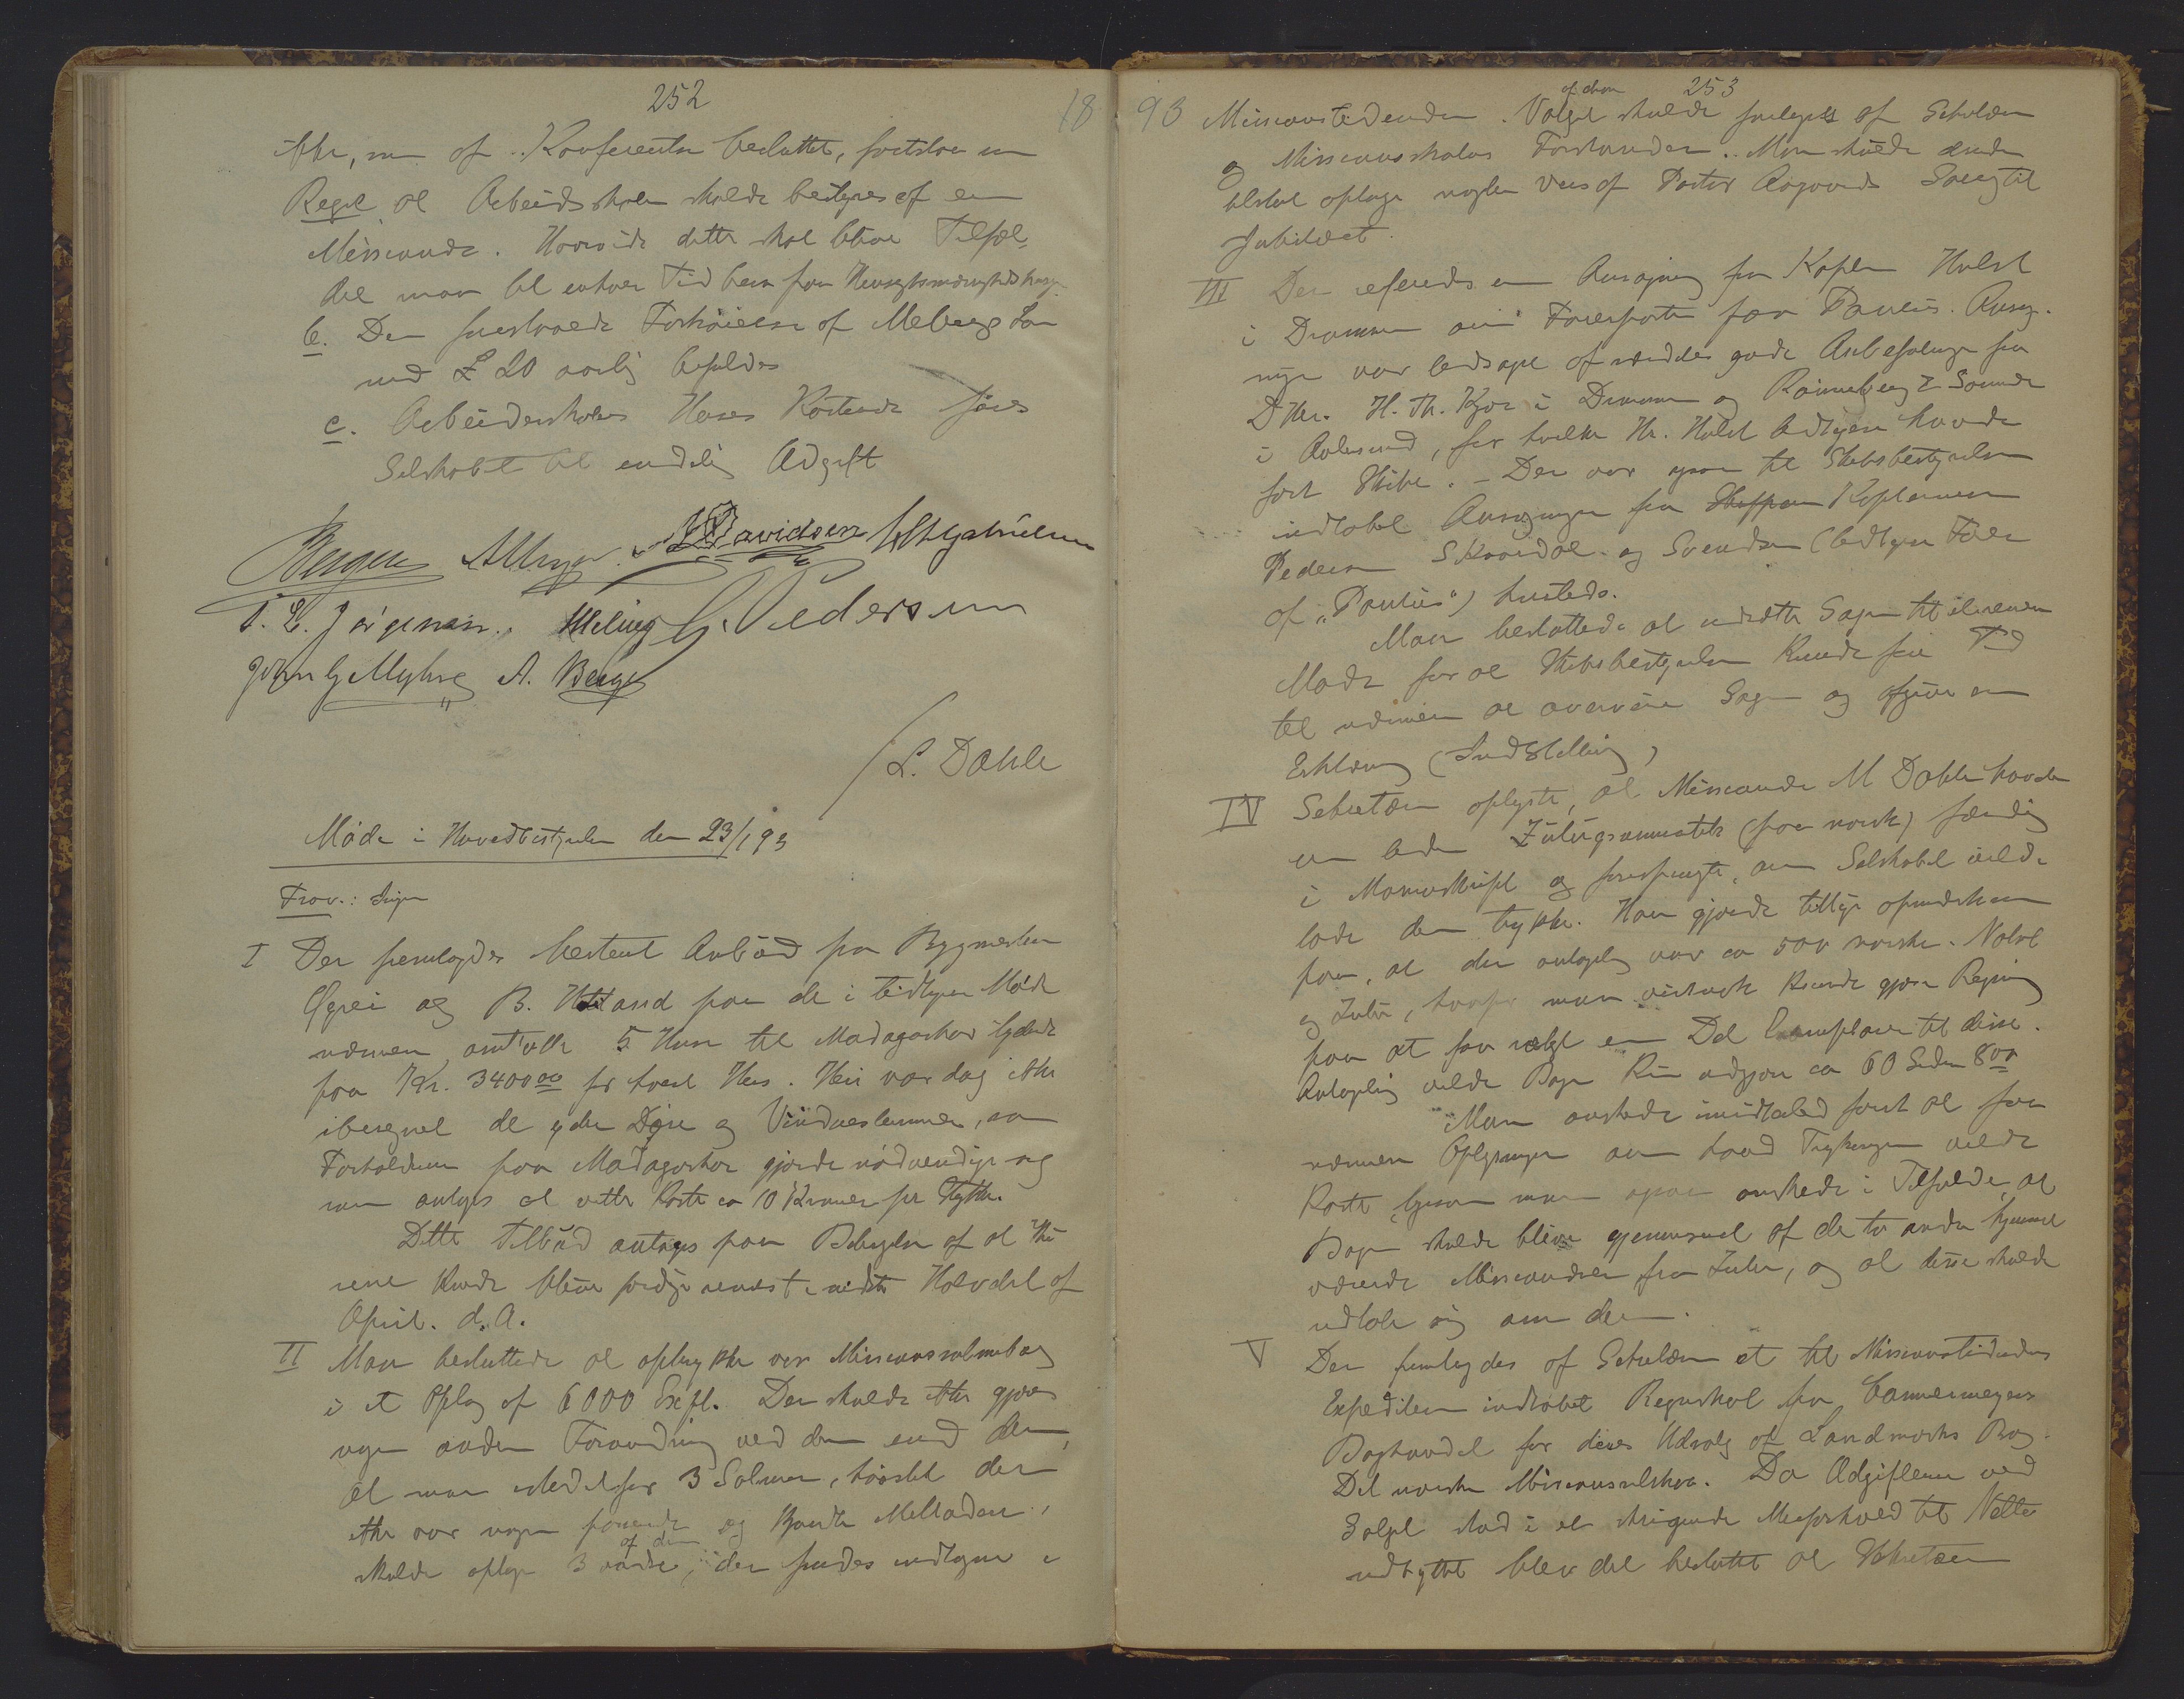 252
ikke, som af Konferentsen besluttet, fastslaa som
Regel at Arbeidsskolen skulde bestyres af en
Missionær. Hvorvidt dette skal blive Tilfæl-
det maa til enhver Tid bero paa
b. Den foreslaaede Forhøielse af Løn
med £ 20 aarlig bifaldes
c. Arbeiderskolens Huses Kostende føres
Selskabet til endelig Udgift
Bergen A Meyer. Davidsen
T. E. Jørgensen. Meling G. Pedersen
John G Myhre A. Berge
/L. Dahle
Møde i Hovedbestyrelsen den 23/1 93
Frav.: Ingen
I Der fremlagdes bestemt Anbud fra Bygmester
og B. paa de i tidligere Møde
nævnte 5 Huse til Madagaskar lydende
paa Kr. 3400 00 pr hvert Hus. Heri var dog ikke
iberegnet de ydre Døre og Vindueslemmer, som
Forholdene paa Madagaskar gjorde nødvendige og
som antages at ville koste ca 10 Kroner pr Stykke.
Dette Tilbud antages paa Betingelse af at Hu
sene kunde blive færdige senest i midten af
April. d. A.
II Man besluttede at optrykke vor Missionssalmebog
i et Oplag af 6000 Expl. Der skulde ikke gjøres
nogen anden Forandring ved den end den,
at man istedetfor 3 Salmer, hvortil der
ikke var nogen passende og kjendte Melodier,
af dem
skulde optage 3 andre, der findes indtagne i
18 93
253
af dem
Missionstidenden. Valget skulde foretages af Sekretæren
og Missionsskolens Forstander. Man skulde endvidere
optage nogle Vers af Pastor Sang til
Jubilæet.
III Der refereredes en Ansøgning fra Kaptein Holst
i Drammen om Førerposten paa "Paulus". Ansøg-
ningen var ledsaget af særdeles gode Anbefalinger fra
DHrr. H. Th. Kjær i Drammen og Rønneberg & Sønner
i Aalesund, for hvilke Hr. Holst tidligere havde
ført Skibe. - Der var ogsaa til Skibsbestyrelsen
indløbet Ansøgninger fra Kapteinerne
Pedersen og Svendsen (tidligere Fører
af "Paulus") hersteds.
Man besluttede at udsætte Sagen til
Møde for at Skibsbestyrelsen kunde faa Tid
til nærmere at overveie Sagen og afgive en
Erklæring (Indstilling)
IV Sekretæren oplyste, at Missionær M Dahle havde
en liden Zulugrammatik (paa norsk) færdig
i Manuskript og forespurgte, om Selskabet vilde
lade den trykke. Han gjorde tillige opmærksom
paa, at der antagelig var ca 500 norske i Natal
og Zulu, hvorfor man kunde gjøre Regning
paa at faa solgt en Del Exemplarer til disse.
Antagelig vilde Bogen kun udgjøre ca 60 Sider 8vo
Man ønskede imidlertid først at faa
nærmere Oplysninger om hvad Trykningen vilde
koste ligesom man ogsaa ønskede i Tilfælde at
Bogen skulde blive gjennemseet af de to andre hjemme
værende Missionærer fra Zulu, og at disse skulde
udtale sig om den.
V Der fremlagdes af Sekretæren et til Missionstidendes
Expedition indløbet Regnskab fra Cammermeyers
Boghandel for dens Udsalg af Landmarks Bog:
Det norske Missionsselskab. Da Udgifterne ved
Salget stod i et Misforhold til Netto
udbyttet blev det besluttet at Sekretæren